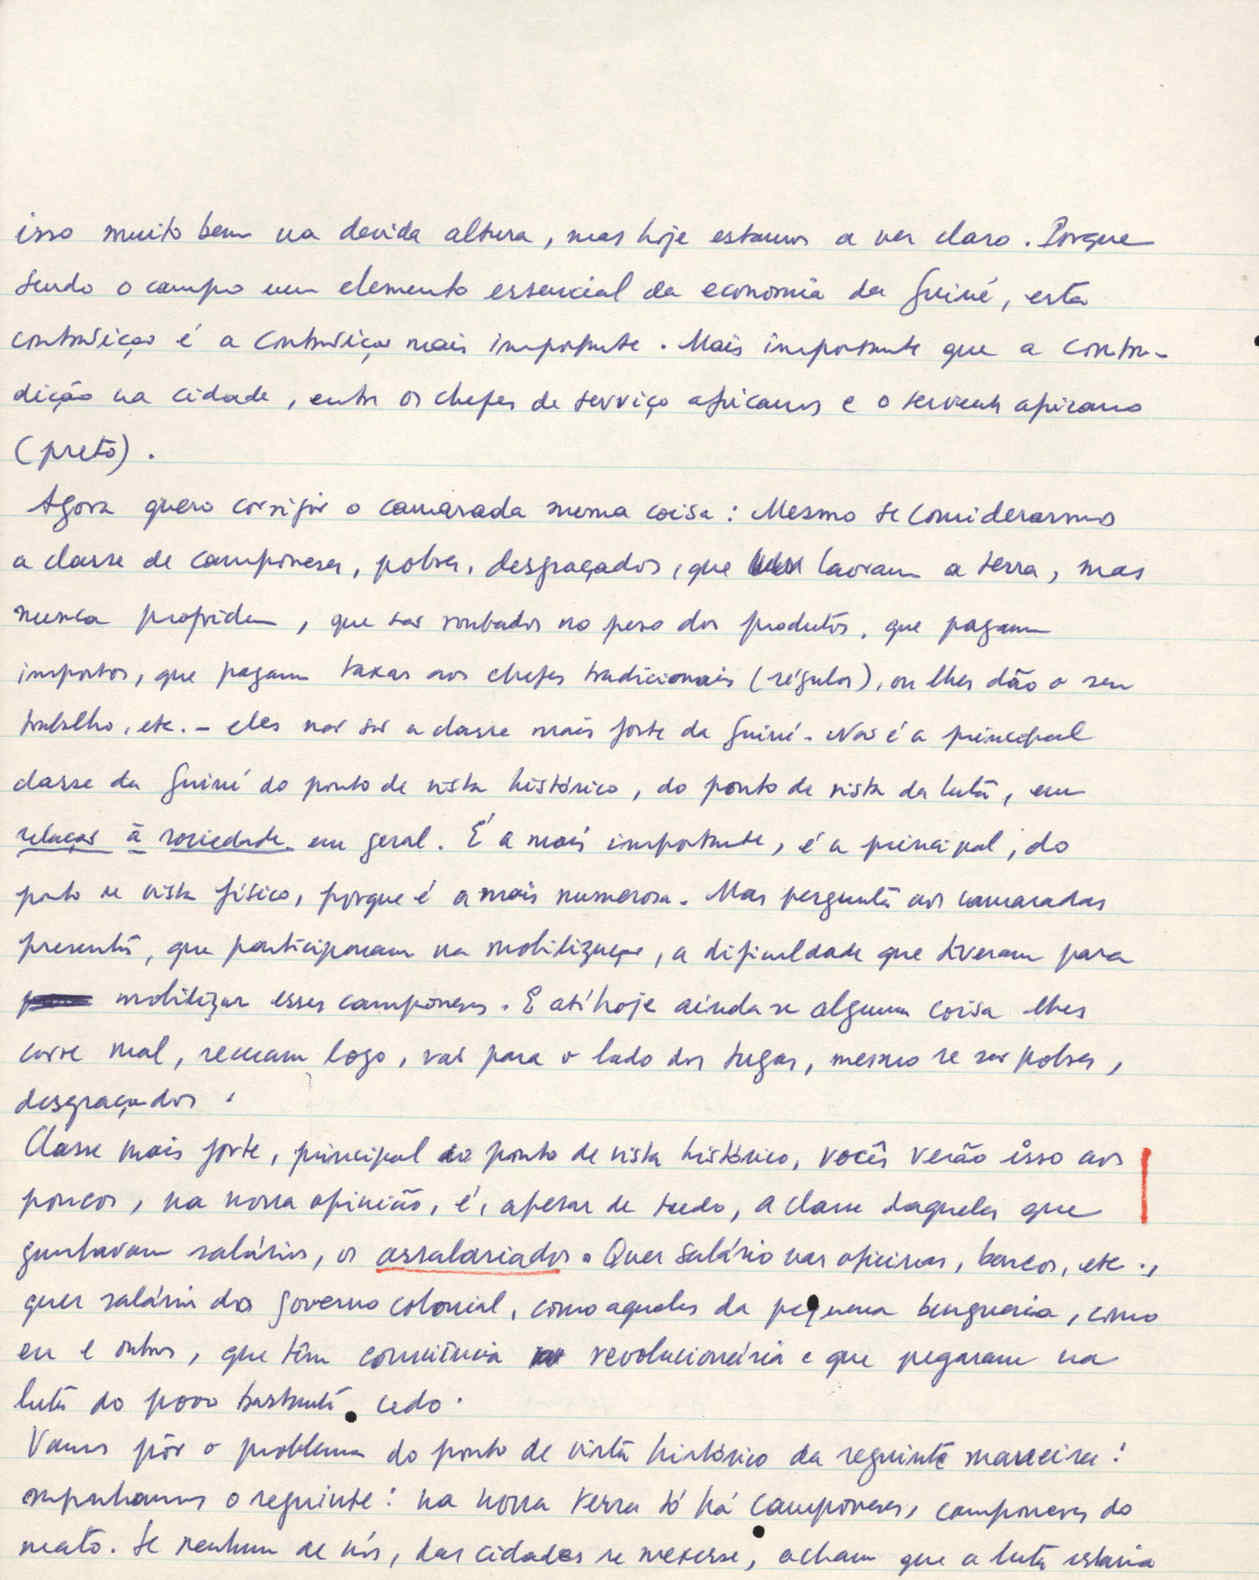 isso muito bem na devida altura, mas hoje estamos a ver claro. Porque
sendo o campo um elemento essencial da economia da Guiné, esta
contradição é a contradição mais importante. Mais importante que a contra-
dição na cidade, entre os chefes de serviço africanos e o servente africano
(preto).
Agora quero corrigir o camarada numa coisa: Mesmo se considerarmos
a classe de camponeses, pobres, desgraçados, que lavram a terra, mas
nunca progridem, que são roubados no peso dos produtos, que pagam
impostos, que pagam taxas aos chefes tradicionais (régulos), ou lhes dão o seu
trabalho, etc. - eles não são a classe mais forte da Guiné. Não é a principal
classe da Guiné do ponto de vista histórico, do ponto de vista da luta, em
relação à sociedade em geral. É a mais importante, é a principal, do
ponto de vista físico, porque é a mais numerosa. Mas pergunta aos camaradas
presentes, que participaram na mobilização, a dificuldade que tiveram para
mobilizar esses camponeses. E até hoje ainda se alguma coisa lhes
corre mal, recuam logo, vão para o lado dos tugas, mesmo se são pobres,
desgraçados.
Classe mais forte, principal do ponto de vista histórico, vocês verão isso aos
poucos, na nossa opinião, é, apesar de tudo, a classe daqueles que
ganhavam salários, os assalariados. Quer salário nas oficinas, barcos, etc.,
quer salário dos governo colonial, como aqueles da pequena burguesia, como
eu e outros, que têm consciência revolucionária e que pegaram na
luta do povo bastante cedo.
Vamos pôr o problema do ponto de vista histórico da seguinte maneira:
suponhamos o seguinte: na nossa terra só há camponeses, camponeses do
mato. Se nenhum de nós, das cidades se mexesse, acham que a luta estaria